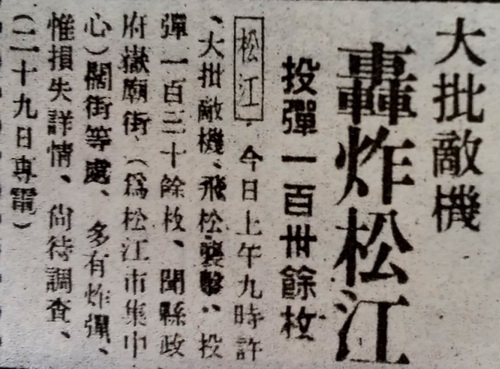 大批敵機
轟炸松江
投彈一百卅餘枚
松江 今日上午九時許
、大批敵機、飛松襲擊、投
彈一百三十餘枚、聞縣政
府嶽廟街、(爲松江市集中
心)閣街等處、多有炸彈、
惟損失詳情、尚待調查、
(二十九日專電)